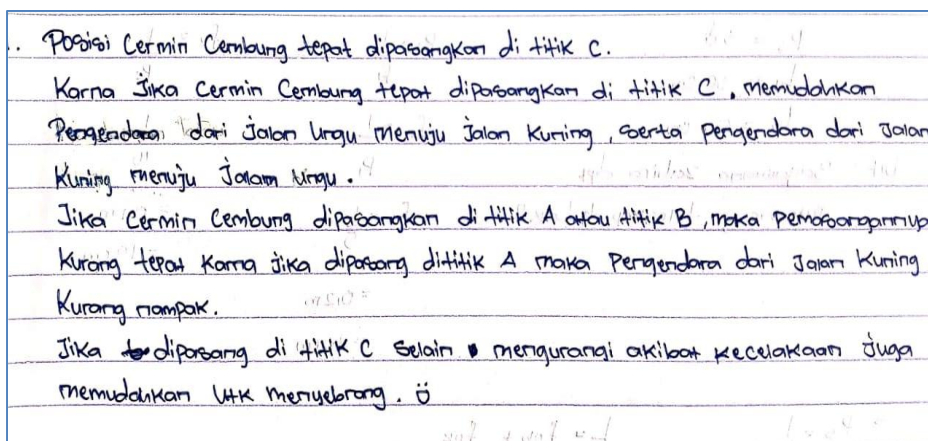 .. Posisi Cermin Cembung tepat dipasangkan di titik C.
Karna Jika Cermin Cembung tepat dipasangkan di titik C, memudahkan
Pengendara dari Jalan Ungu menuju Jalan Kuning, serta pengendara dari Jalan
Kuning menuju Jalam Ungu.
Jika Cermin Cembung dipasangkan di titik A atau titik B, maka pemasangannya
Kurang tepat Karna jika dipasang dititik A maka Pengendara dari Jalan Kuning
Kurang nampak.
Jika dipasang di titik C selain mengurangi akibat kecelakaan Juga
memudahkan utk menyebrang. ü